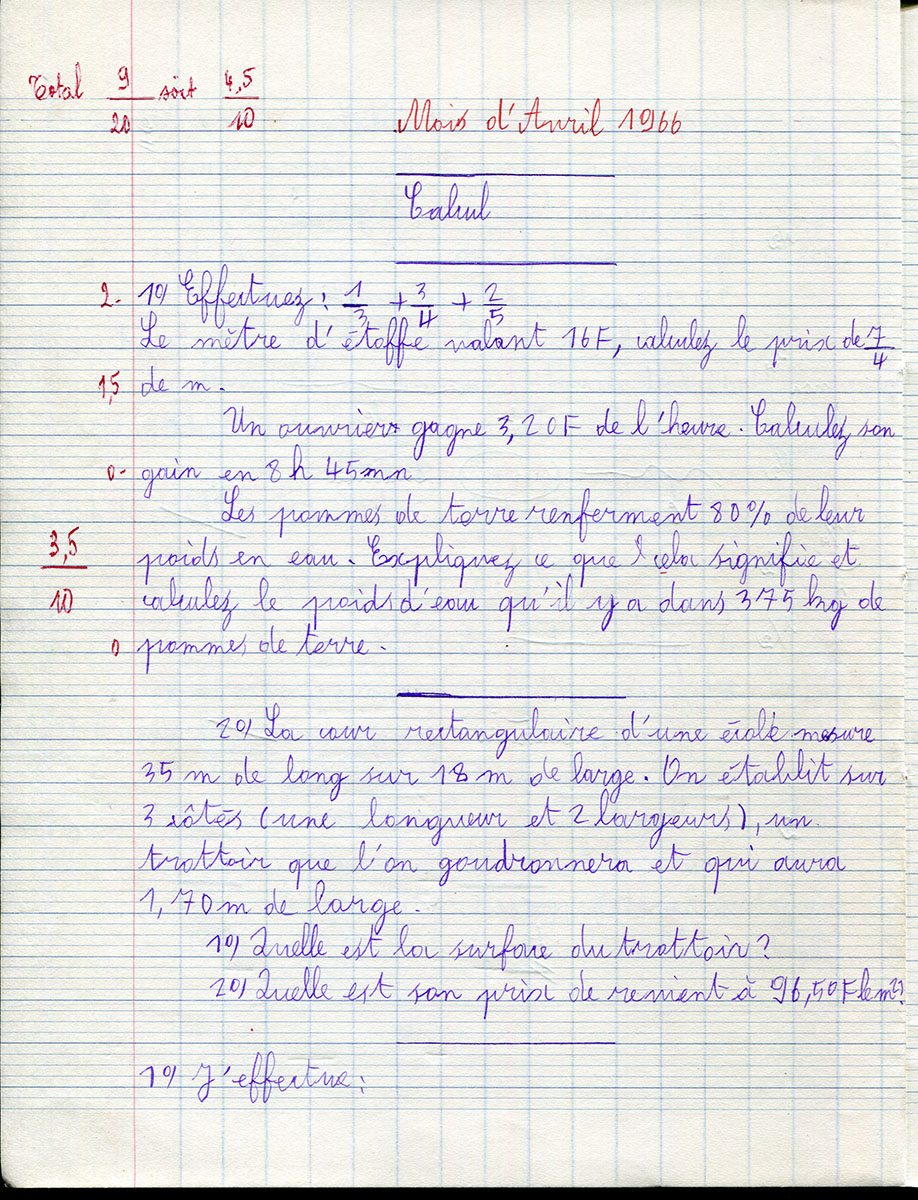 Total 9/20 soit 4,5/10
Mois d'Avril 1966
Calcul
2- 1°) Effectuez : 1/3 + 3/4 + 2/5
Le mètre d'étoffe valant 16F, calculez le prix de 7/4
1,5 de m.
Un ouvrier gagne 3,20F de l'heure. Calculez son
0- gain en 8h 45mn
Les pommes de terre renferment 80% de leur
3,5/10
poids en eau. Expliquez ce que cela signifie et
calculez le poids d'eau qu'il y a dans 375 kg de
0 pommes de terre.
2°) La cour rectangulaire d'une école mesure
35 m de long sur 18 m de large. On établit sur
3 côtés (une longueur et 2 largeurs), un
trottoir que l'on goudronnera et qui aura
1,70m de large.
1°) Quelle est la surface du trottoir ?
2°) Quelle est son prix de revient à 96,50F le m² ?
1°) J'effectue :